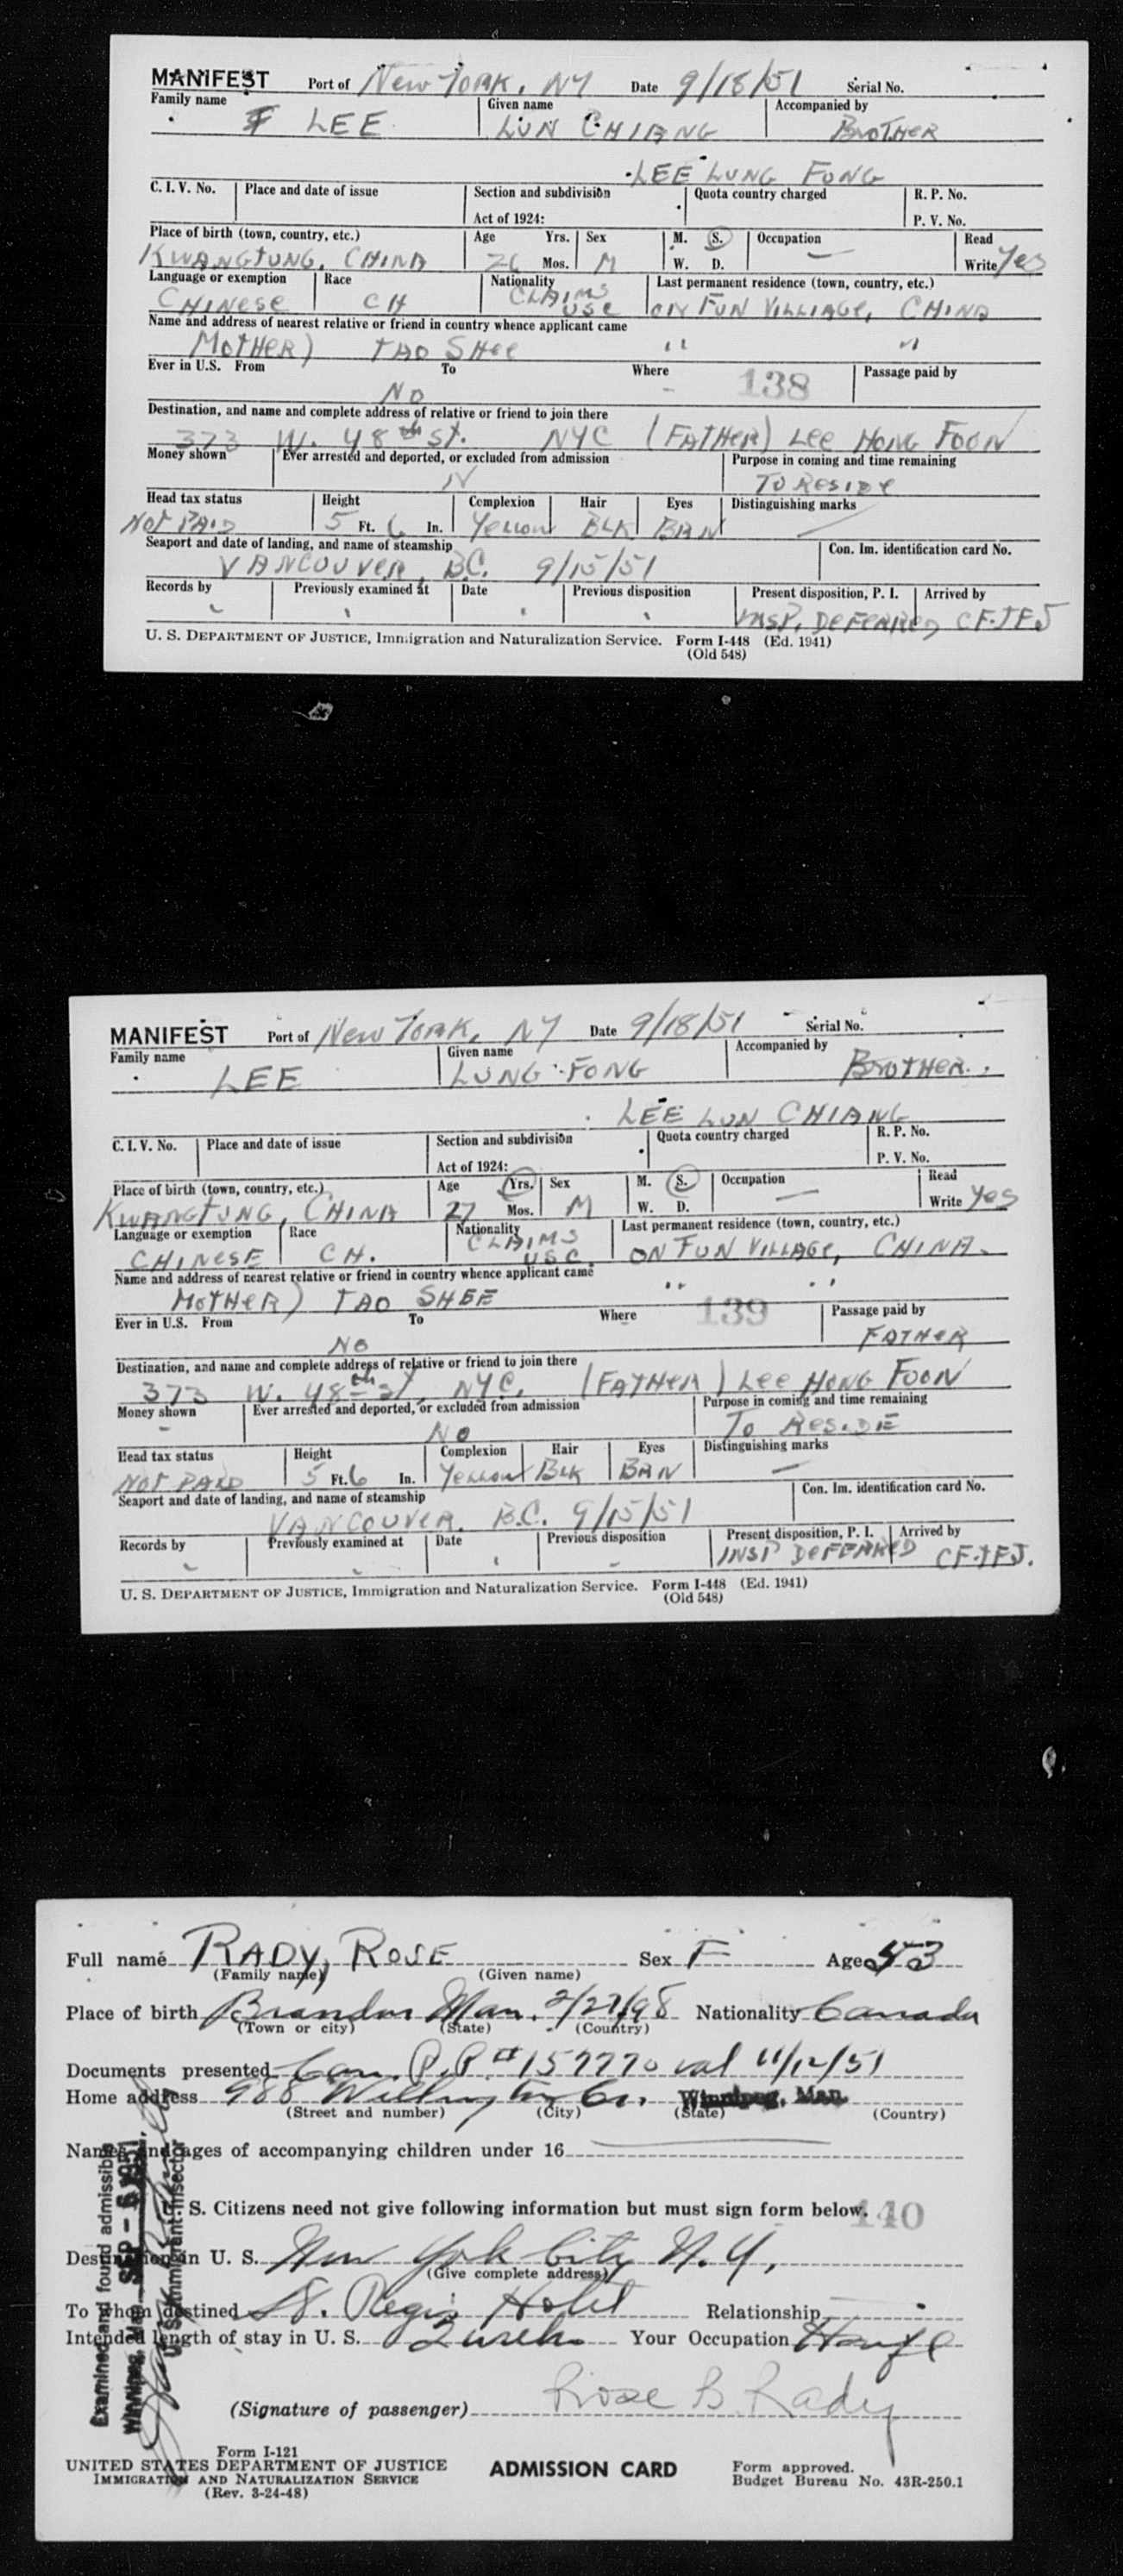 MANIFEST Port of New York, NY Date 9/18/51 Serial No.
Family name Given name Accompanied by
LEE LUN CHIANG BROTHER
LEE LUNG FONG
C. I. V. No. Place and date of issue Section and subdivision Quota country charged R. P. No.
Act of 1924: P. V. No.
Place of birth (town, country, etc.) Age Yrs. Sex M. S. Occupation Read
KWANGTUNG, CHINA 26 Mos. M W. D. — Write Yes
Language or exemption Race Nationality Last permanent residence (town, country, etc.)
CHINESE CH CLAIMS USC ON FUN VILLIAGE, CHINA
Name and address of nearest relative or friend in country whence applicant came
MOTHER) TAO SHEE " "
Ever in U.S. From To Where 138 Passage paid by
NO -
Destination, and name and complete address of relative or friend to join there
373 W. 48th ST. NYC (FATHER) LEE HONG FOON
Money shown Ever arrested and deported, or excluded from admission Purpose in coming and time remaining
N TO RESIDE
Head tax status Height Complexion Hair Eyes Distinguishing marks
NOT PAID 5 Ft. 6 In. Yellow BLK BRN
Seaport and date of landing, and name of steamship Con. Im. identification card No.
VANCOUVER, B.C. 9/15/51
Records by Previously examined at Date Previous disposition Present disposition, P. I. Arrived by
INSP. DEFERRED CF-JFJ
U. S. DEPARTMENT OF JUSTICE, Immigration and Naturalization Service. Form I-448 (Ed. 1941)
(Old 548)
MANIFEST Port of New York, NY Date 9/18/51 Serial No.
Family name Given name Accompanied by
LEE LUNG FONG BROTHER
LEE LUN CHIANG
C. I. V. No. Place and date of issue Section and subdivision Quota country charged R. P. No.
Act of 1924: P. V. No.
Place of birth (town, country, etc.) Age Yrs. Sex M. S. Occupation Read
KWANGTUNG, CHINA 27 Mos. M W. D. — Write Yes
Language or exemption Race Nationality Last permanent residence (town, country, etc.)
CHINESE CH. CLAIMS USC ON FUN VILLAGE, CHINA.
Name and address of nearest relative or friend in country whence applicant came
MOTHER) TAO SHEE " "
Ever in U.S. From To Where 139 Passage paid by
NO FATHER
Destination, and name and complete address of relative or friend to join there
373 W. 48th ST, NYC, (FATHER) LEE HONG FOON
Money shown Ever arrested and deported, or excluded from admission Purpose in coming and time remaining
- NO TO RESIDE
Head tax status Height Complexion Hair Eyes Distinguishing marks
NOT PAID 5 Ft. 6 In. Yellow BLK BRN —
Seaport and date of landing, and name of steamship Con. Im. identification card No.
VANCOUVER, B.C. 9/15/51
Records by Previously examined at Date Previous disposition Present disposition, P. I. Arrived by
INSP DEFERRED CF-JFJ.
U. S. DEPARTMENT OF JUSTICE, Immigration and Naturalization Service. Form I-448 (Ed. 1941)
(Old 548)
Full name RADY, ROSE Sex F Age 53
(Family name) (Given name)
Place of birth Brandon Man. 2/27/98 Nationality Canada
(Town or city) (State) (Country)
Documents presented Can. P.P. # 157770 val 11/12/51
Home address 988 Wellington Cr. Winnipeg, Man.
(Street and number) (City) (State) (Country)
Names and ages of accompanying children under 16
U. S. Citizens need not give following information but must sign form below.
140
Destination in U. S. New York City N.Y,
(Give complete address)
To whom destined St. Regis Hotel Relationship
Intended length of stay in U. S. 2 weeks Your Occupation Hswfe
(Signature of passenger) Rose B Rady
Examined and found admissible
Winnipeg, Man. SEP - 6 1951
U. S. Immigrant Inspector
Form I-121
UNITED STATES DEPARTMENT OF JUSTICE ADMISSION CARD Form approved.
IMMIGRATION AND NATURALIZATION SERVICE Budget Bureau No. 43R-250.1
(Rev. 3-24-48)